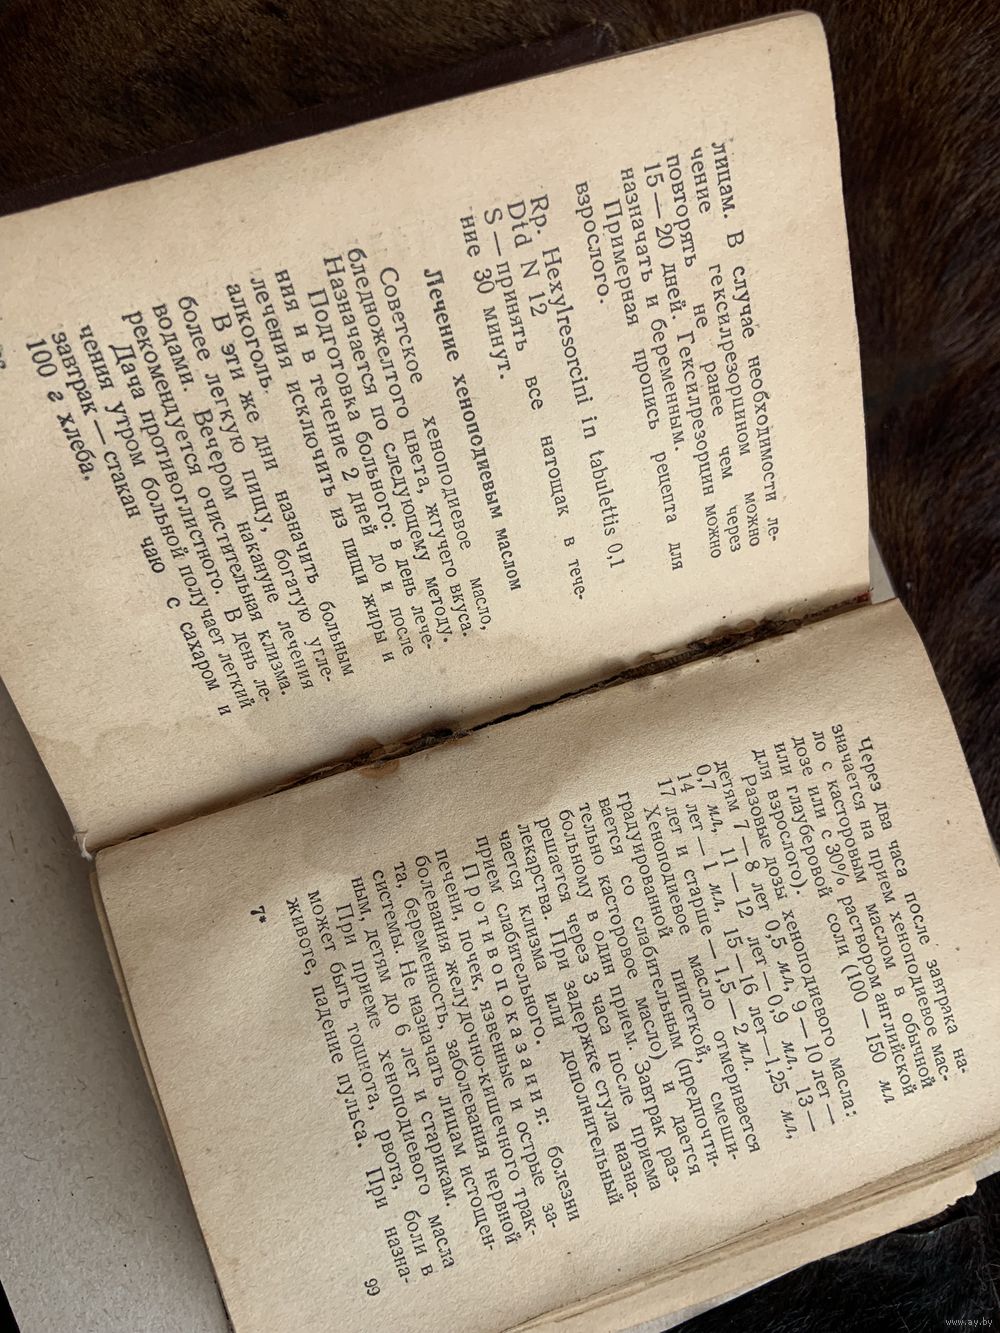 лицам. В случае необходимости ле-
чение гексилрезорцином можно
повторять не ранее чем через
15 — 20 дней. Гексилрезорцин можно
назначать и беременным.
Примерная пропись рецепта для
взрослого.
Rp. Hexylresorcini in tabulettis 0,1
Dtd N 12
S — принять все натощак в тече-
ние 30 минут.
Лечение хеноподиевым маслом
Советское хеноподиевое масло,
бледножелтого цвета, жгучего вкуса.
Назначается по следующему методу.
Подготовка больного: в день лече-
ния и в течение 2 дней до и после
лечения исключить из пищи жиры и
алкоголь.
В эти же дни назначить больным
более легкую пищу, богатую угле-
водами. Вечером накануне лечения
рекомендуется очистительная клизма.
Дача противоглистного. В день ле-
чения утром больной получает легкий
завтрак — стакан чаю с сахаром и
100 г хлеба.
Через два часа после завтрака на-
значается на прием хеноподиевое мас-
ло с касторовым маслом в обычной
дозе или с 30% раствором английской
или глауберовой соли (100 — 150 мл
для взрослого).
Разовые дозы хеноподиевого масла:
детям 7 — 8 лет 0,5 мл, 9 — 10 лет —
0,7 мл, 11 — 12 лет — 0,9 мл, 13 —
14 лет — 1 мл, 15 — 16 лет — 1,25 мл,
17 лет и старше — 1,5 — 2 мл.
Хеноподиевое масло отмеривается
градуированной пипеткой, смеши-
вается со слабительным (предпочти-
тельно касторовое масло) и дается
больному в один прием. Завтрак раз-
решается через 3 часа после приема
лекарства. При задержке стула назна-
чается клизма или дополнительный
прием слабительного.
Противопоказания: болезни
печени, почек, язвенные и острые за-
болевания желудочно-кишечного трак-
та, беременность, заболевания нервной
системы. Не назначать лицам истощен-
ным, детям до 6 лет и старикам.
При приеме хеноподиевого масла
может быть тошнота, рвота, боли в
животе, падение пульса. При назна-
7*
99
www.ay.by